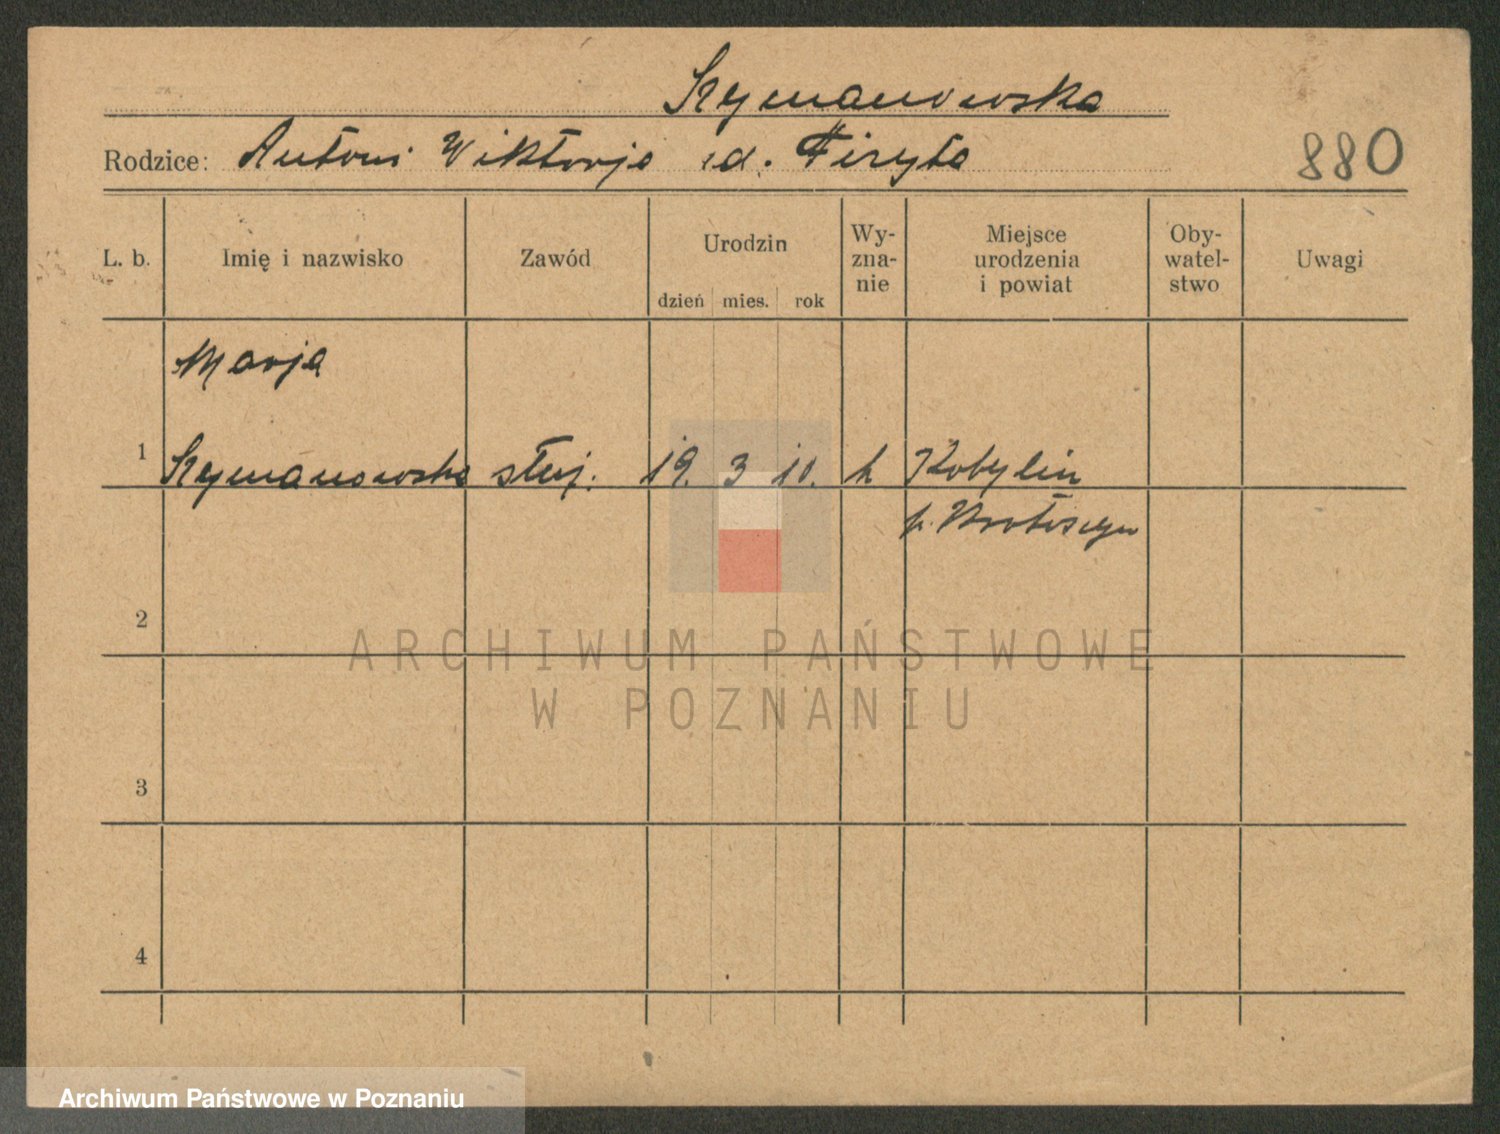 Szymanowska
Rodzice: Antoni Wiktorja zd.
880
L. b. Imię i nazwisko Zawód Urodzin dzień mies. rok Wy-zna-nie Miejsce urodzenia i powiat Oby-watel-stwo Uwagi
Marja
1 Szymanowska służ. 19. 3 10. k Kobylin
p. Krotoszyn
2
ARCHIWUM PAŃSTWOWE
W POZNANIU
3
4
Archiwum Państwowe w Poznaniu